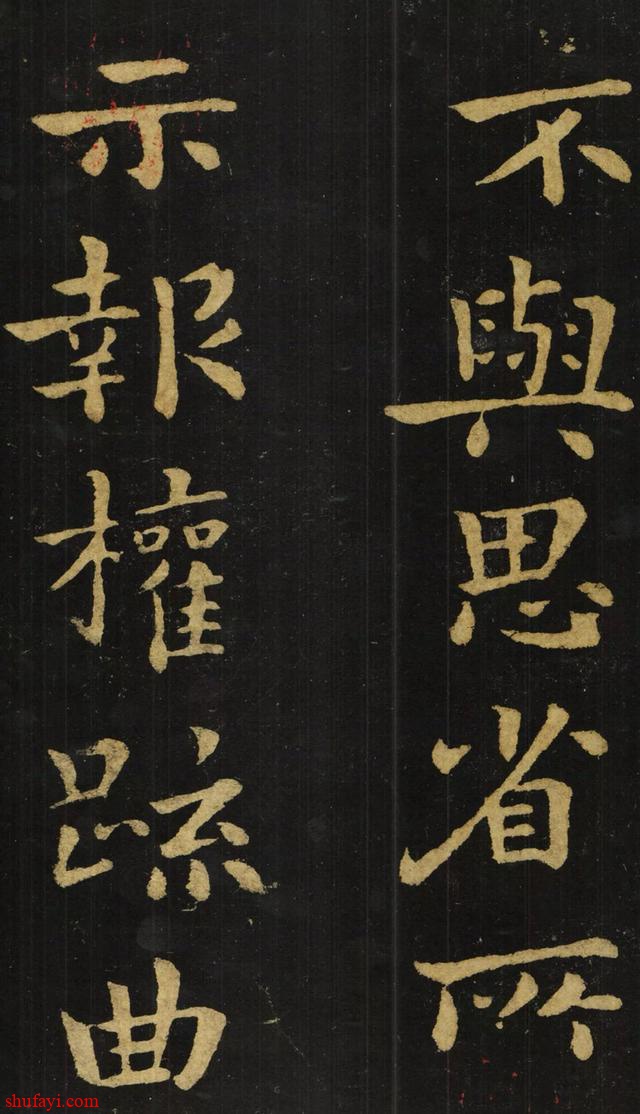 不與思省所
示報權疏曲
shufayi.com